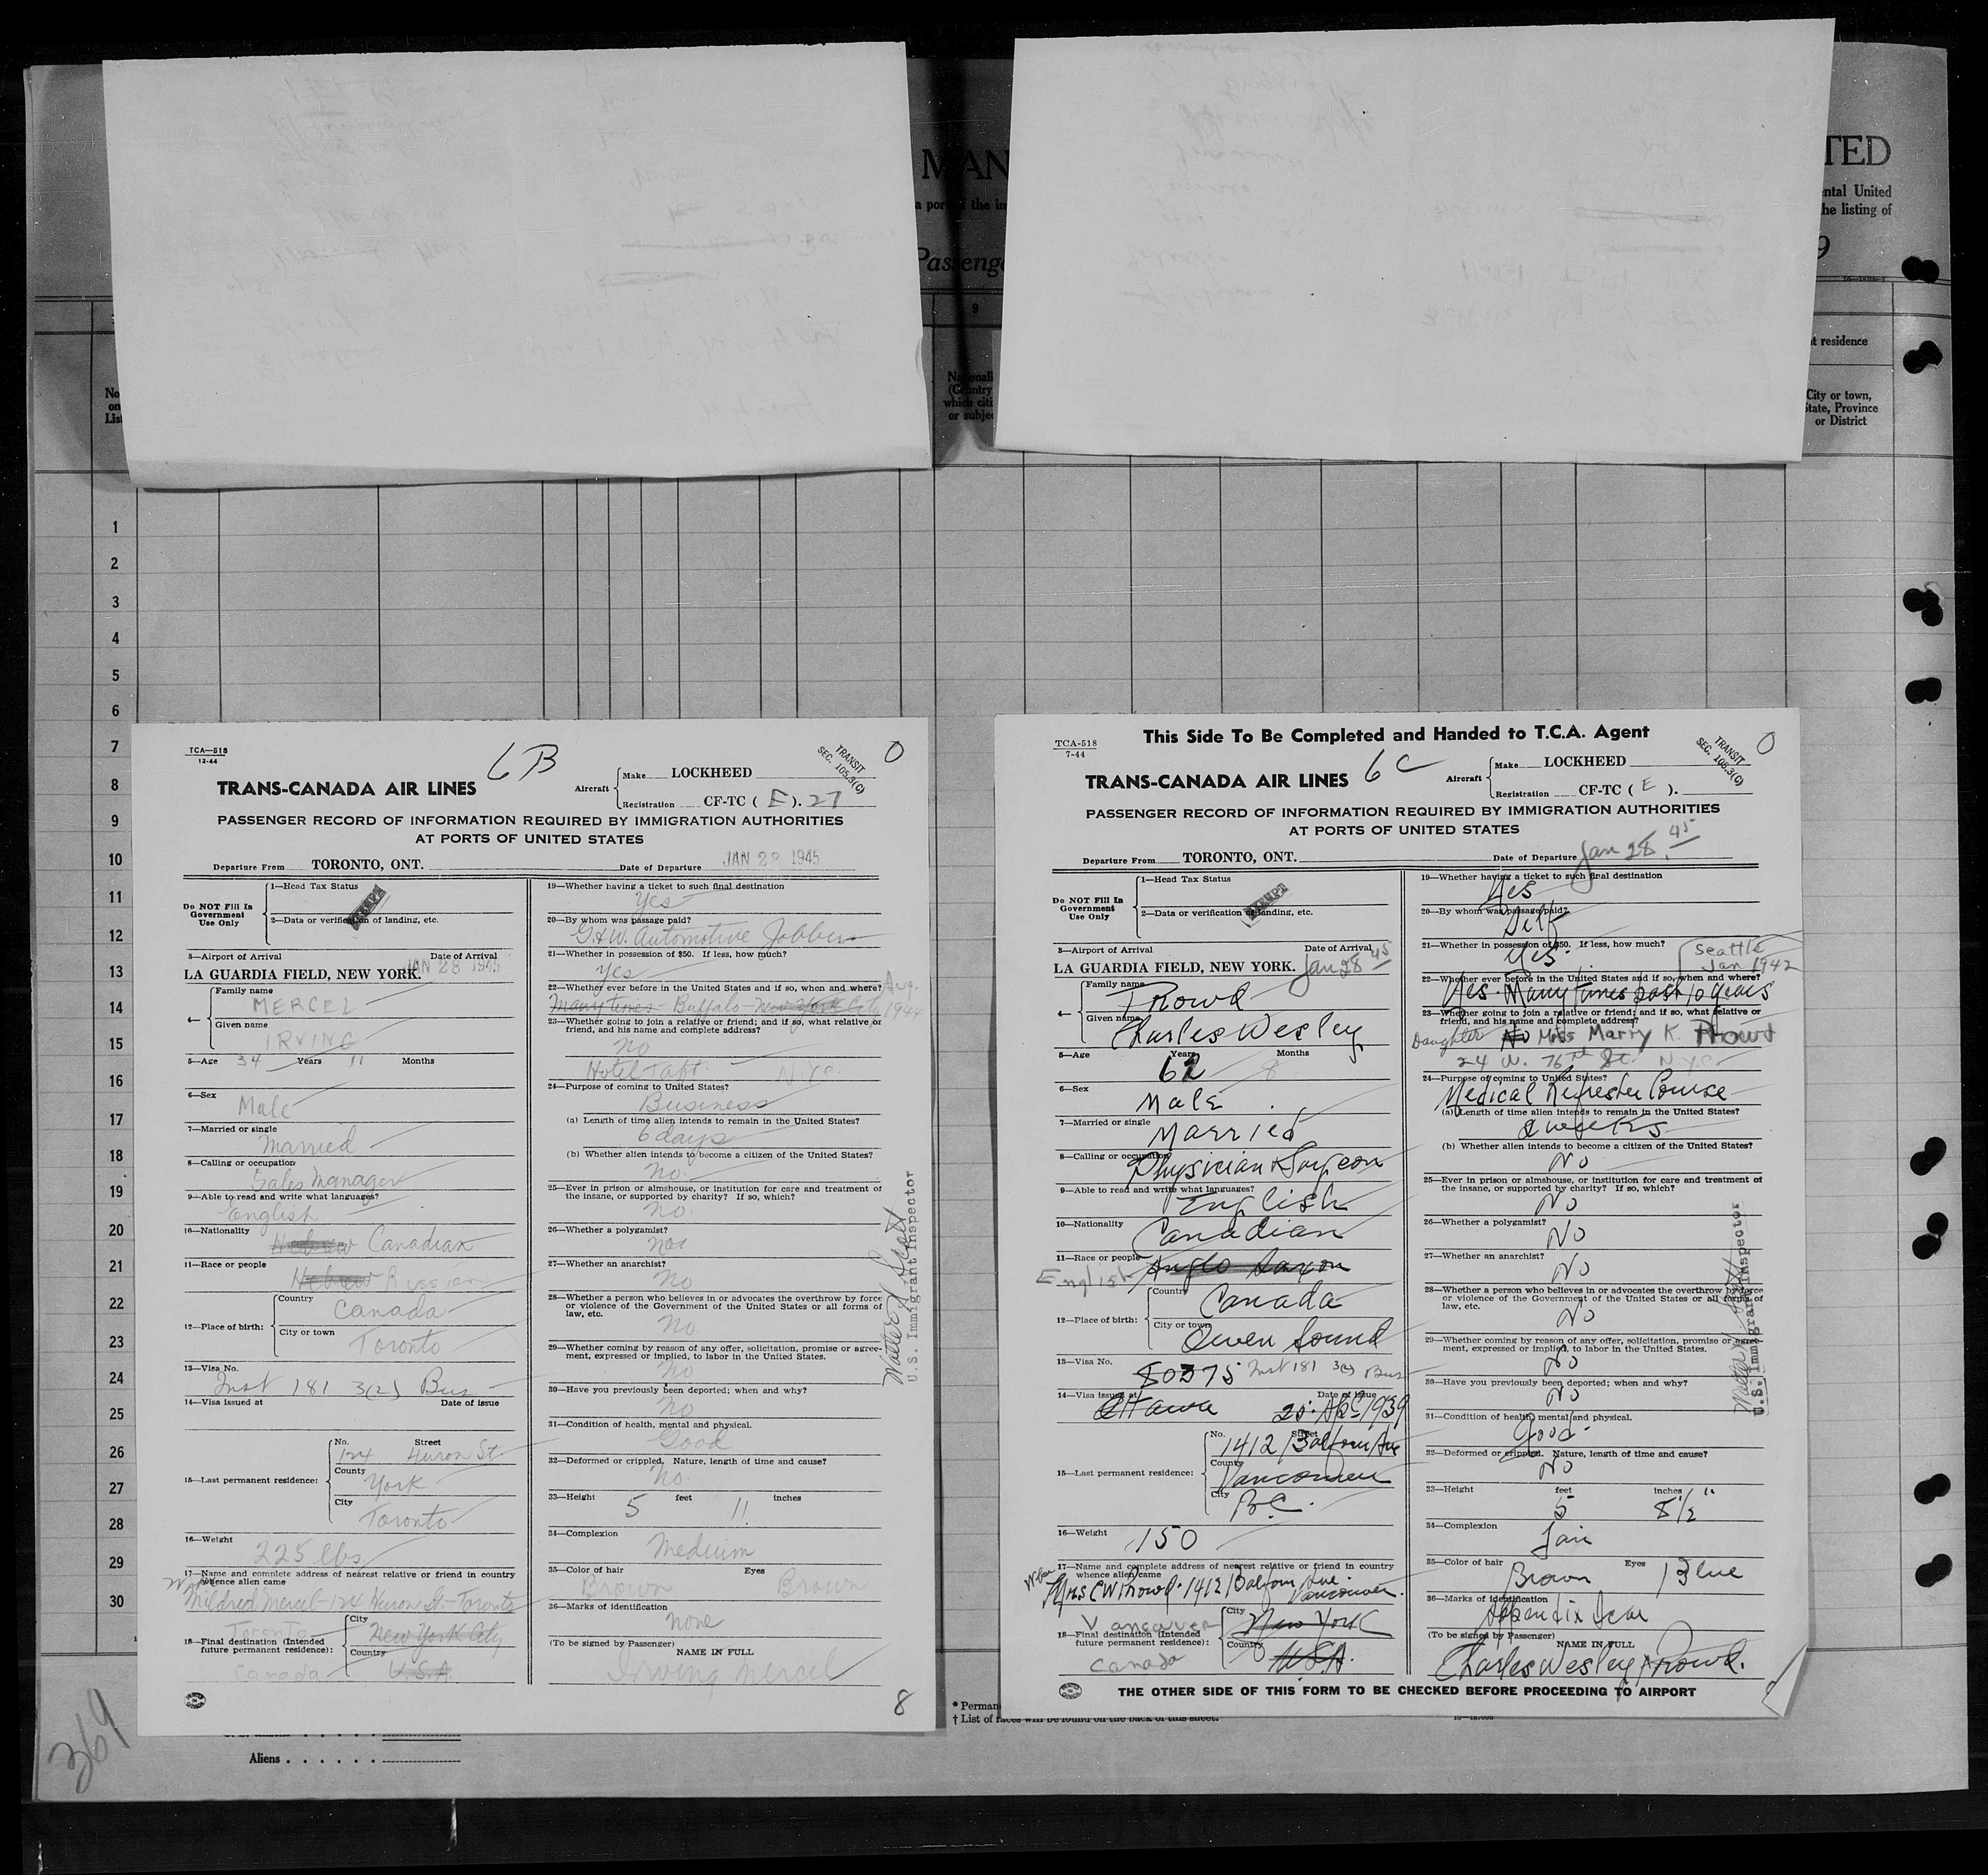 MAN
TED
ental United
he listing of
a por the in
Passeng
9
9
t residence
No
on
Lis
Nationali
(Country
which citi
or subje
City or town,
State, Province
or District
1
2
3
4
5
6
7
8
9
10
11
12
13
14
15
16
17
18
19
20
21
22
23
24
25
26
27
28
29
30
TCA—518
12-44
6B
TRANSIT
SEC. 105.3(C)
0
TRANS-CANADA AIR LINES
Aircraft
Make LOCKHEED
Registration CF-TC ( E ). 27
PASSENGER RECORD OF INFORMATION REQUIRED BY IMMIGRATION AUTHORITIES
AT PORTS OF UNITED STATES
Departure From TORONTO, ONT. Date of Departure JAN 28 1945
Do NOT Fill In
Government
Use Only
1—Head Tax Status
EXEMPT
2—Data or verification of landing, etc.
3—Airport of Arrival Date of Arrival
LA GUARDIA FIELD, NEW YORK. JAN 28 1945
4—
Family name
MERCEL
Given name
IRVING
5—Age 34 Years 11 Months
6—Sex
Male
7—Married or single
Married
8—Calling or occupation
Sales Manager
9—Able to read and write what languages?
English
10—Nationality
Hebrew Canadian
11—Race or people
Hebrew Russian
12—Place of birth:
Country
Canada
City or town
Toronto
13—Visa No.
Inst 181 3(2) Bus
14—Visa issued at Date of issue
15—Last permanent residence:
No. Street
124 Huron St
County
York
City
Toronto
16—Weight
225 lbs
17—Name and complete address of nearest relative or friend in country
whence alien came
Mildred Mercel - 124 Huron St - Toronto
Toronto
18—Final destination (Intended
future permanent residence):
Canada
City
New York City
Country
U.S.A.
19—Whether having a ticket to such final destination
Yes
20—By whom was passage paid?
G.&W. Automotive Jobbers
21—Whether in possession of $50. If less, how much?
Yes
22—Whether ever before in the United States and if so, when and where? Aug.
Many times - Buffalo - New York City 1944
23—Whether going to join a relative or friend; and if so, what relative or
friend, and his name and complete address?
No
Hotel Taft. N.Y.C.
24—Purpose of coming to United States?
Business
(a) Length of time alien intends to remain in the United States?
6 days
(b) Whether alien intends to become a citizen of the United States?
No.
25—Ever in prison or almshouse, or institution for care and treatment of
the insane, or supported by charity? If so, which?
No.
26—Whether a polygamist?
No
27—Whether an anarchist?
No
28—Whether a person who believes in or advocates the overthrow by force
or violence of the Government of the United States or all forms of
law, etc.
No
29—Whether coming by reason of any offer, solicitation, promise or agree-
ment, expressed or implied, to labor in the United States.
No
30—Have you previously been deported; when and why?
No
31—Condition of health, mental and physical.
Good
32—Deformed or crippled. Nature, length of time and cause?
No.
33—Height 5 feet 11 inches
34—Complexion
Medium
35—Color of hair Eyes
Brown Brown
36—Marks of identification
none
(To be signed by Passenger)
NAME IN FULL
Irving Mercel
8
Walter J Scott
U.S. Immigrant Inspector
This Side To Be Completed and Handed to T.C.A. Agent
TCA-518
7-44
6C
TRANSIT
SEC. 105.3(C)
0
TRANS-CANADA AIR LINES
Aircraft
Make LOCKHEED
Registration CF-TC ( E ).
PASSENGER RECORD OF INFORMATION REQUIRED BY IMMIGRATION AUTHORITIES
AT PORTS OF UNITED STATES
Departure From TORONTO, ONT. Date of Departure Jan 28. 45
Do NOT Fill In
Government
Use Only
1—Head Tax Status
EXEMPT
2—Data or verification of landing, etc.
3—Airport of Arrival Date of Arrival
LA GUARDIA FIELD, NEW YORK. Jan 28 45
4—
Family name
Prowd
Given name
Charles Wesley
5—Age Years Months
62 8
6—Sex
Male
7—Married or single
Married
8—Calling or occupation
Physician & Surgeon
9—Able to read and write what languages?
English
10—Nationality
Canadian
11—Race or people
English Anglo Saxon
12—Place of birth:
Country
Canada
City or town
Owen Sound
13—Visa No.
80375 Inst 181 3(2) Bus
14—Visa issued at Date of issue
Ottawa 25. Apr 1939
15—Last permanent residence:
No. Street
1412 Balfour Ave
County
Vancouver
City
B.C.
16—Weight
150
17—Name and complete address of nearest relative or friend in country
whence alien came
Mrs C W Prowd. 1412 Balfour Ave. Vancouver.
Vancouver
18—Final destination (Intended
future permanent residence):
Canada
City
New York
Country
U.S.A.
19—Whether having a ticket to such final destination
Yes
20—By whom was passage paid?
Self
21—Whether in possession of $50. If less, how much?
Yes.
Seattle
Jan 1942
22—Whether ever before in the United States and if so, when and where?
Yes. Many times past 10 years
23—Whether going to join a relative or friend; and if so, what relative or
friend, and his name and complete address?
Daughter No Miss Marry K. Prowd
24 W. 76th St. N.Y.C.
24—Purpose of coming to United States?
Medical Refresher Course
(a) Length of time alien intends to remain in the United States?
2 weeks
(b) Whether alien intends to become a citizen of the United States?
No
25—Ever in prison or almshouse, or institution for care and treatment of
the insane, or supported by charity? If so, which?
No
26—Whether a polygamist?
No
27—Whether an anarchist?
No
28—Whether a person who believes in or advocates the overthrow by force
or violence of the Government of the United States or all forms of
law, etc.
No
29—Whether coming by reason of any offer, solicitation, promise or agree-
ment, expressed or implied, to labor in the United States.
No
30—Have you previously been deported; when and why?
No
31—Condition of health, mental and physical.
Good
32—Deformed or crippled. Nature, length of time and cause?
No
33—Height feet inches
5 8 1/2 "
34—Complexion
Fair
35—Color of hair Eyes
Brown Blue
36—Marks of identification
Appendix Scar
(To be signed by Passenger)
NAME IN FULL
Charles Wesley Prowd.
THE OTHER SIDE OF THIS FORM TO BE CHECKED BEFORE PROCEEDING TO AIRPORT
U.S. Immigrant Inspector
* Perman
† List of races will be found on the back of this sheet.
Aliens
369